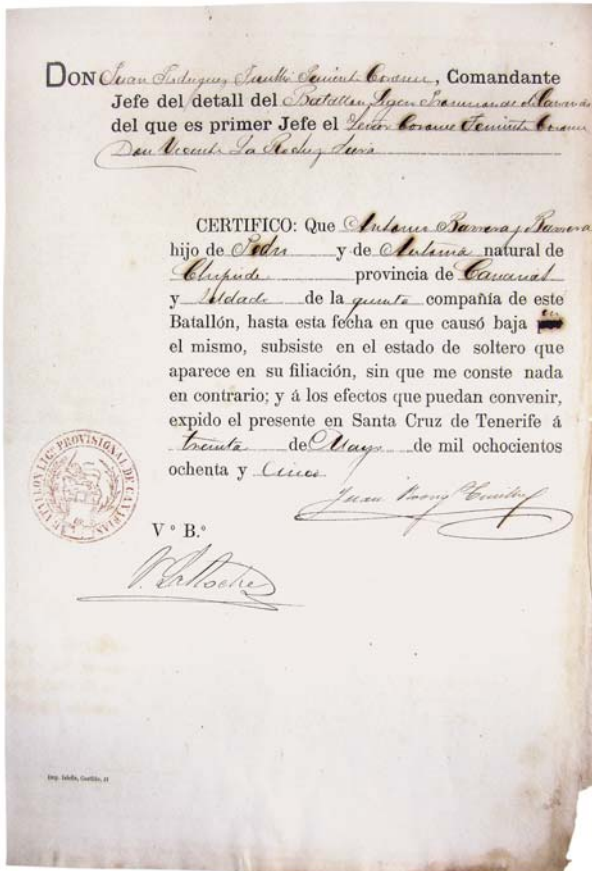 DON Juan Rodriguez Teniente Coronel, Comandante
Jefe del detall del Batallon Ligero Provisional de Canarias
del que es primer Jefe el Señor Coronel Teniente Coronel
Don Vicente La Roche y
CERTIFICO: Que Antonio Barrera y Barrera
hijo de Pedro y de Antonia natural de
Chipude provincia de Canarias
y Soldado de la quinta compañía de este
Batallón, hasta esta fecha en que causó baja en
el mismo, subsiste en el estado de soltero que
aparece en su filiación, sin que me conste nada
en contrario; y á los efectos que puedan convenir,
expido el presente en Santa Cruz de Tenerife á
treinta de Mayo de mil ochocientos
ochenta y Cinco
BATALLON LIGº PROVISIONAL DE CANARIAS
Juan
V° B.°
V. LaRoche